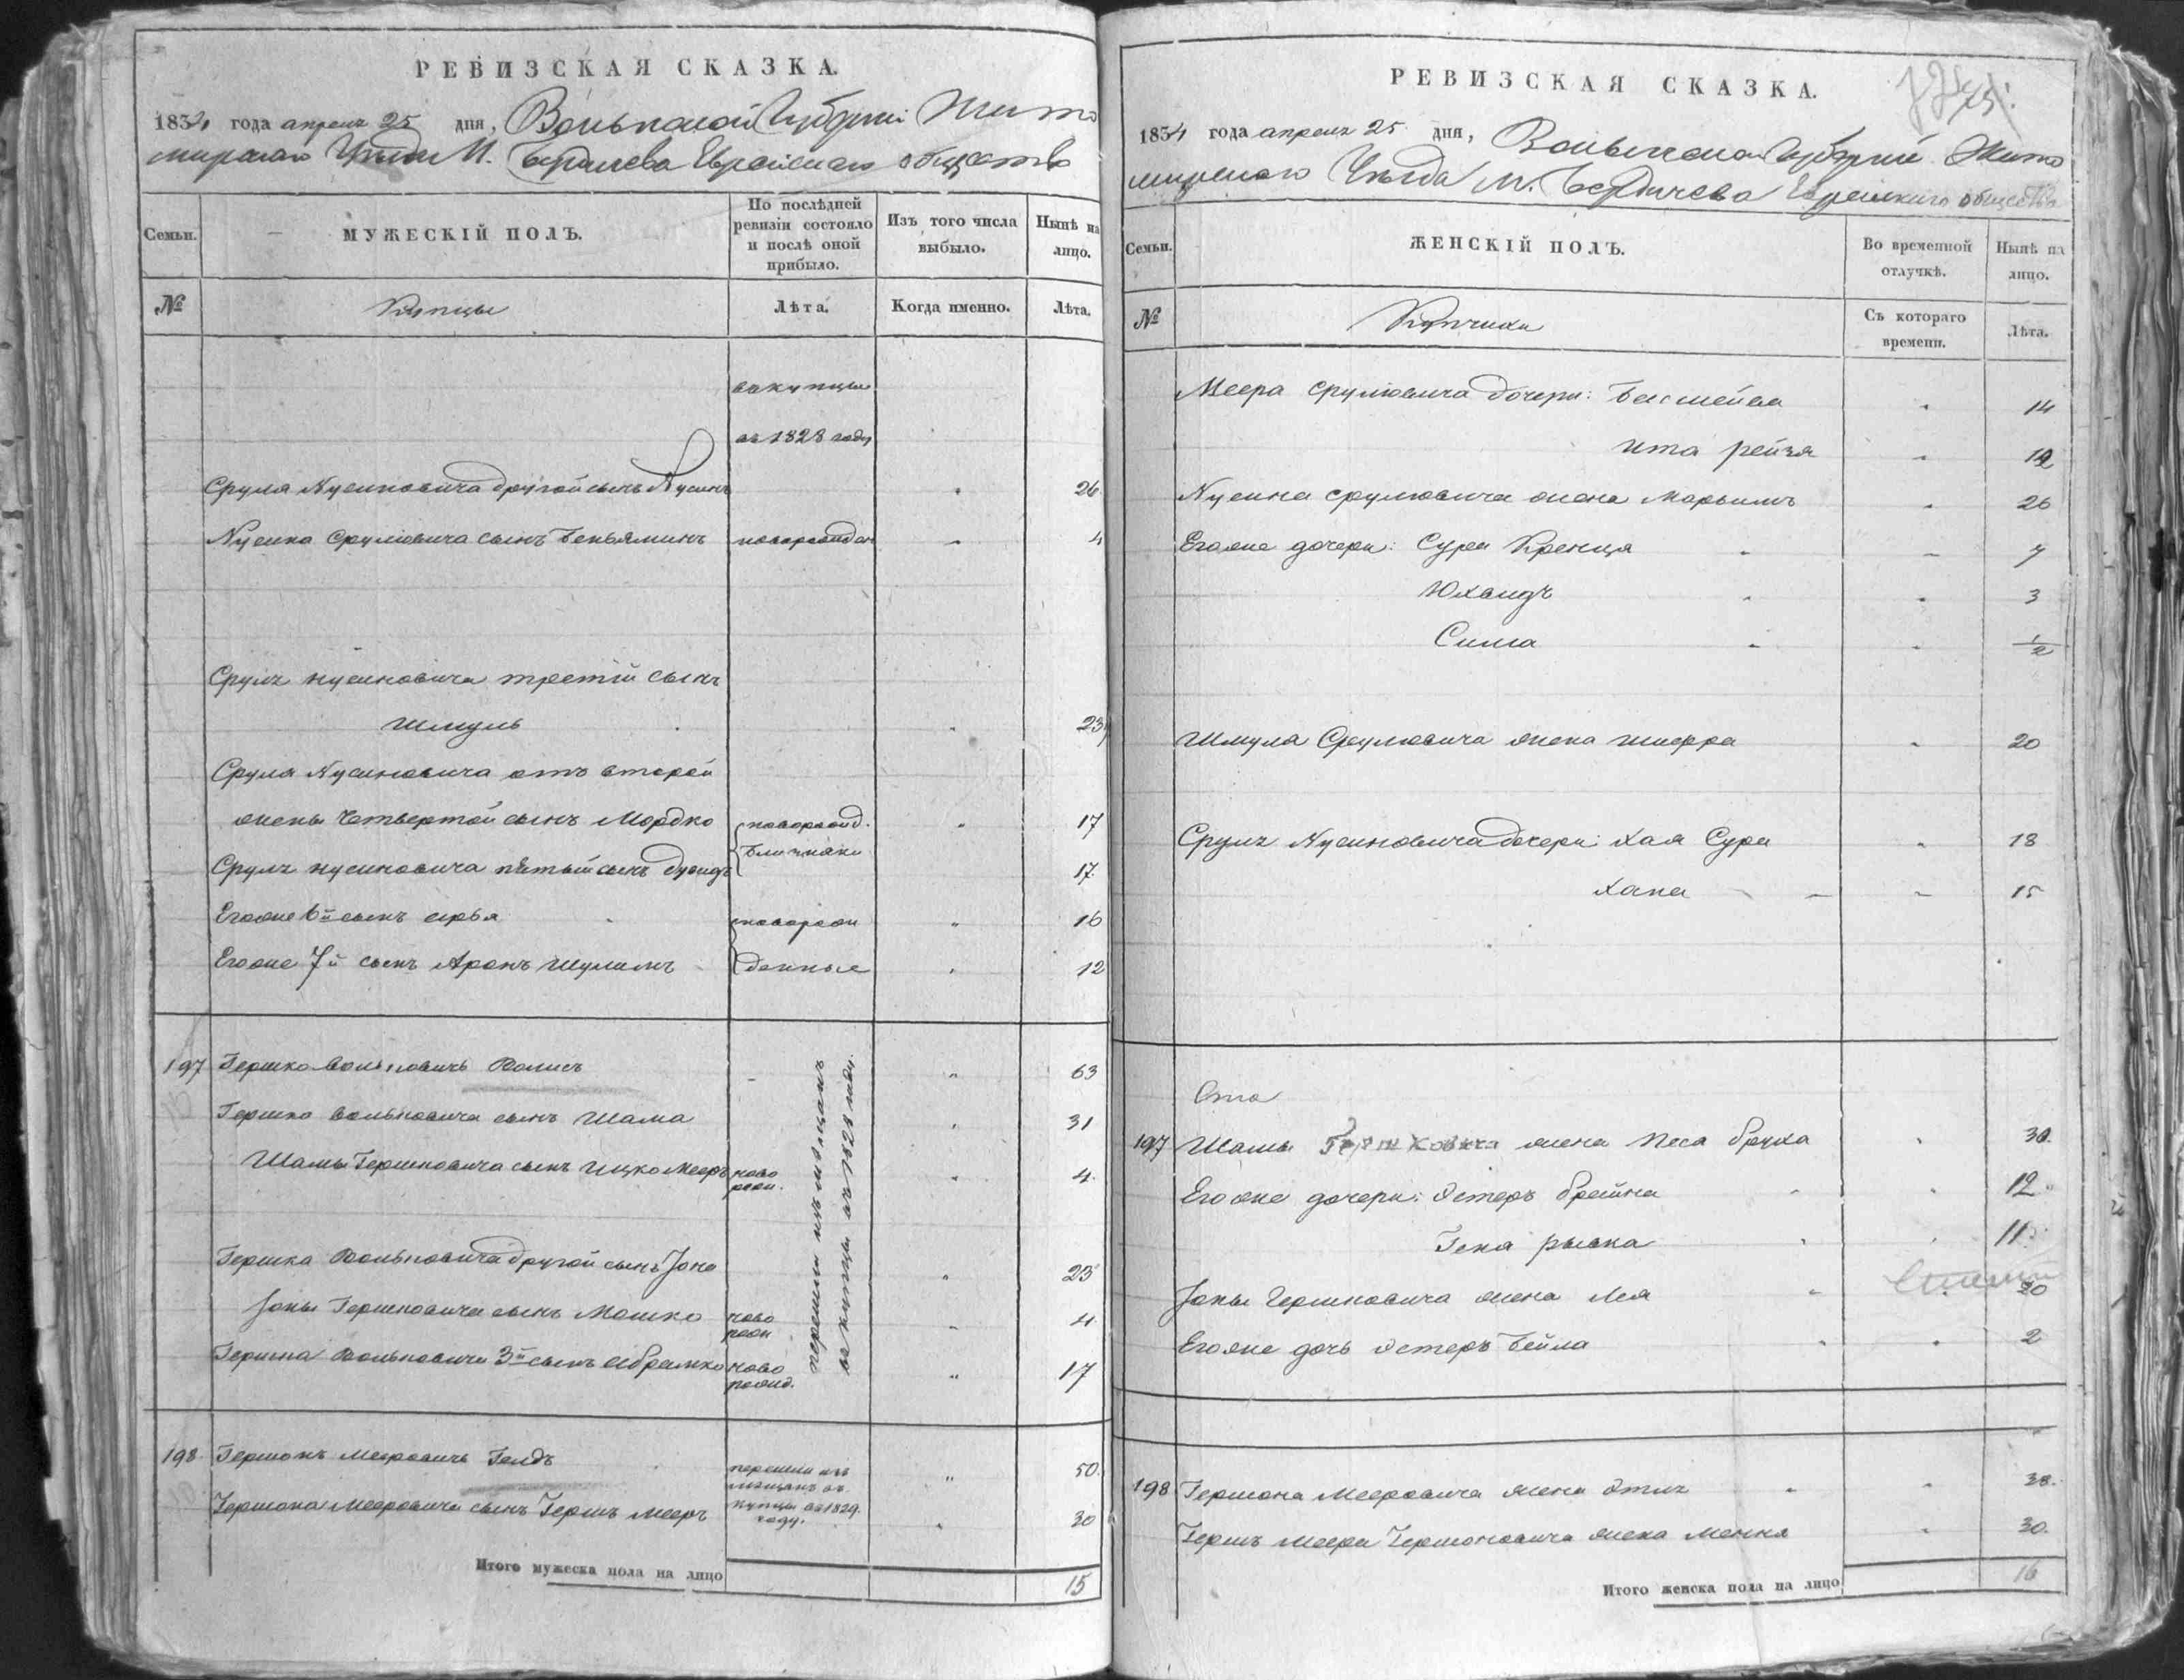 РЕВИЗСКАЯ СКАЗКА.
1834 года апреля 25 дня, Волынской Губернии Жито
мирскаго Уезда М. Бердичева Еврейскаго общества
Семьи.
МУЖЕСКІЙ ПОЛЪ.
По послѣдней ревизіи состояло и послѣ оной прибыло.
Изъ того числа выбыло.
Нынѣ на лицо.
№
Купцы
Лѣта.
Когда именно.
Лѣта.
въ купцы
въ 1828 году
Сруля Нусиновича другой сынъ Нусинъ 26
Нусина Срулювича сынъ Беньяминъ новорожден 4
Сруля Нусиновича третій сынъ
Шмуль 23
Сруля Нусиновича отъ второй
жены Четвертой сынъ Мордко новорожд. 17
близнаки
Сруля Нусиновича пятый сынъ Дувидъ 17.
Егоже 6й сынъ 16
новорож
Егоже 7й сынъ Аронъ Шулимъ денные 12
197 Гершко Вольковичъ 63
Гершка Вольковича сынъ Шама 31
Шамы Гершковича сынъ Ицко Мееръ ново рож. 4.
Гершка Вольковича другой сынъ Іона 25
Іоны Гершковича сынъ Мошко ново рож 4
Гершка Вольковича 3й сынъ Абрамко ново рожд. 17
перешли изъ мѣщанъ
въ купцы въ 1828 году.
198 Гершонъ Мееровичъ 50.
перешли изъ
мѣщанъ въ
купцы въ 1829.
году.
Гершона Мееровича сынъ Гершъ Мееръ 30
Итого мужеска пола на лицо 15
РЕВИЗСКАЯ СКАЗКА.
1834 года апреля 25 дня, Волынской Губерніи Жито
мирскаго Уѣзда М. Бердичева Еврейскаго общества
Семьи.
ЖЕНСКІЙ ПОЛЪ.
Во временной отлучкѣ.
Нынѣ на лицо.
№
Купчихи
Съ котораго времени.
Лѣта.
Меера Срулювича дочери: 14
Ита Рейзя 12
Нусина Срулювича жена Марьимъ 26
Егоже дочери: Сура Кренця 7
Юхвидъ 3
Сима 1/2
Шмуля Срулювича жена Шифра 20
Сруля Нусиновича дочери: Хая Сура 18
Хана 15
197 Шамы Гершковича жена Песа Бруха 30.
Егоже дочери: Эстеръ Брайна 12
Геня Рывка 11
Іоны Гершковича жена Лея 20
Егоже дочь Эстеръ Бейла 2
198 Гершона Мееровича жена 38.
Гершъ Меера Гершоновича жена Меня 30.
Итого женска пола на лицо 16